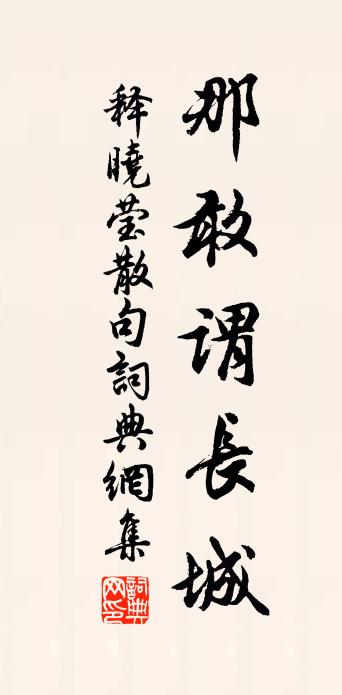 那敢谓長城
释曉莹散句詞典網集
詞典网印